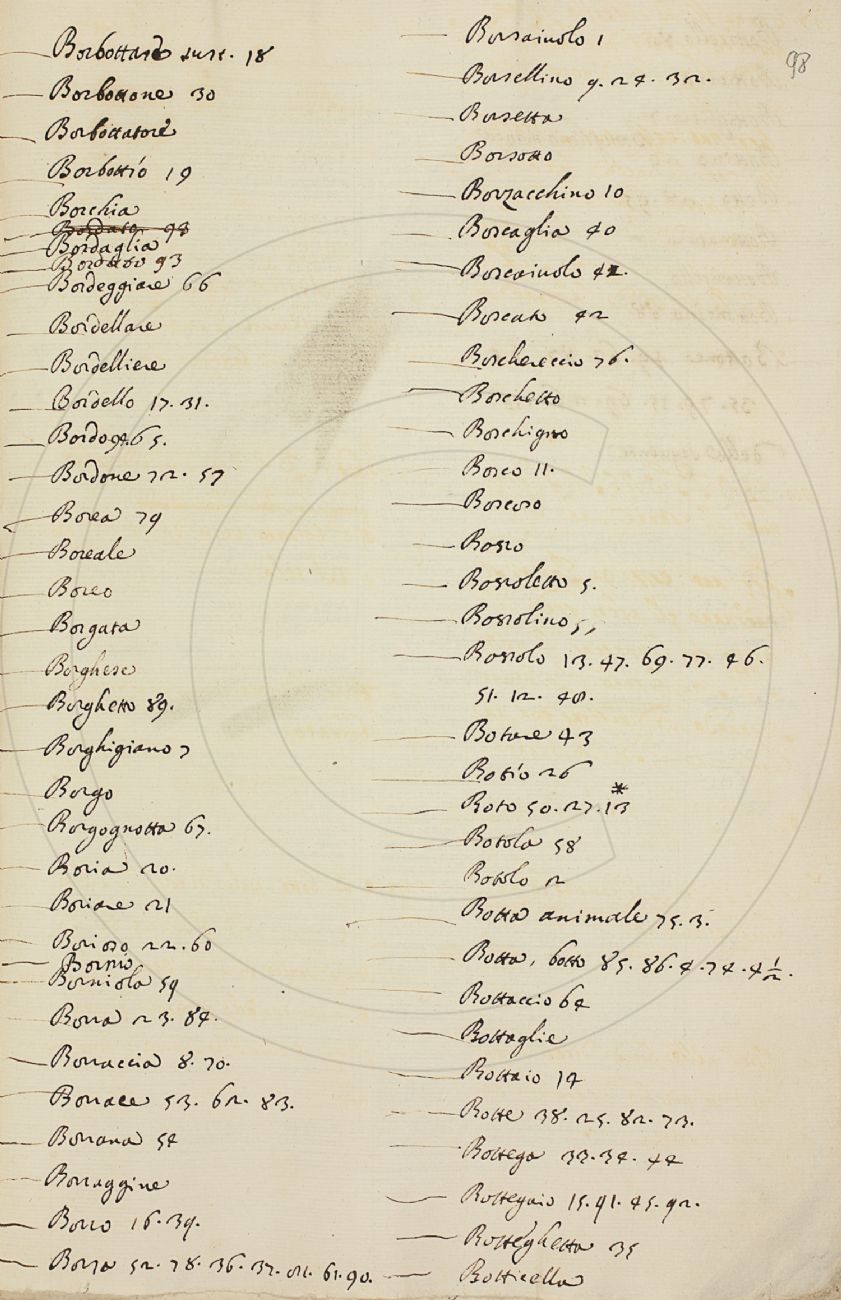 98
— Borbottare sust. 18
— Borbottone 30
— Borbottatore
— Borbottío 19
— Borchia
— Bordato 93
— Bordaglia
— Bordato 93
— Bordeggiare 66
— Bordellare
— Bordelliere
— Bordello 17. 31.
— Bordo 94. 65.
— Bordone 72. 57
— Borea 79
— Boreale
— Boreo
— Borgata
— Borghese
— Borghetto 89.
— Borghigiano 7
— Borgo
— Borgognotta 67.
— Boria 20.
— Boriare 21
— Borioso 22. 60
— Bornio
— Borniola 59
— Borra 23. 84.
— Borraccia 8. 70.
— Borrace 53. 62. 83.
— Borrana 54
— Borraggine
— Borro 16. 39.
— Borsa 52. 78. 36. 37. 61. 90.
— Borsaiuolo 1
— Borsellino 9. 24. 32.
— Borsetta
— Borsotto
— Borzacchino 10
— Boscaglia 40
— Boscaiuolo 41.
— Boscato 42
— Boschereccio 76.
— Boschetto
— Boschigno
— Bosco 11.
— Boscoso
— Bosso
— Bossoletto 5.
— Bossolino 5,
— Bossolo 13. 47. 69. 77. 46.
51. 12. 48.
— Botare 43
— Botío 26
— Boto 50. 27. 13 *
— Botola 58
— Botolo 2
— Botta animale 75. 3.
— Botta, botto 85. 86. 4. 74. 4 1/2.
— Bottaccio 64
— Bottaglie
— Bottaio 14
— Botte 38. 25. 82. 73.
— Bottega 33. 34. 44
— Bottegaio 15. 91. 45. 92.
— Botteghetta 35
— Botticella